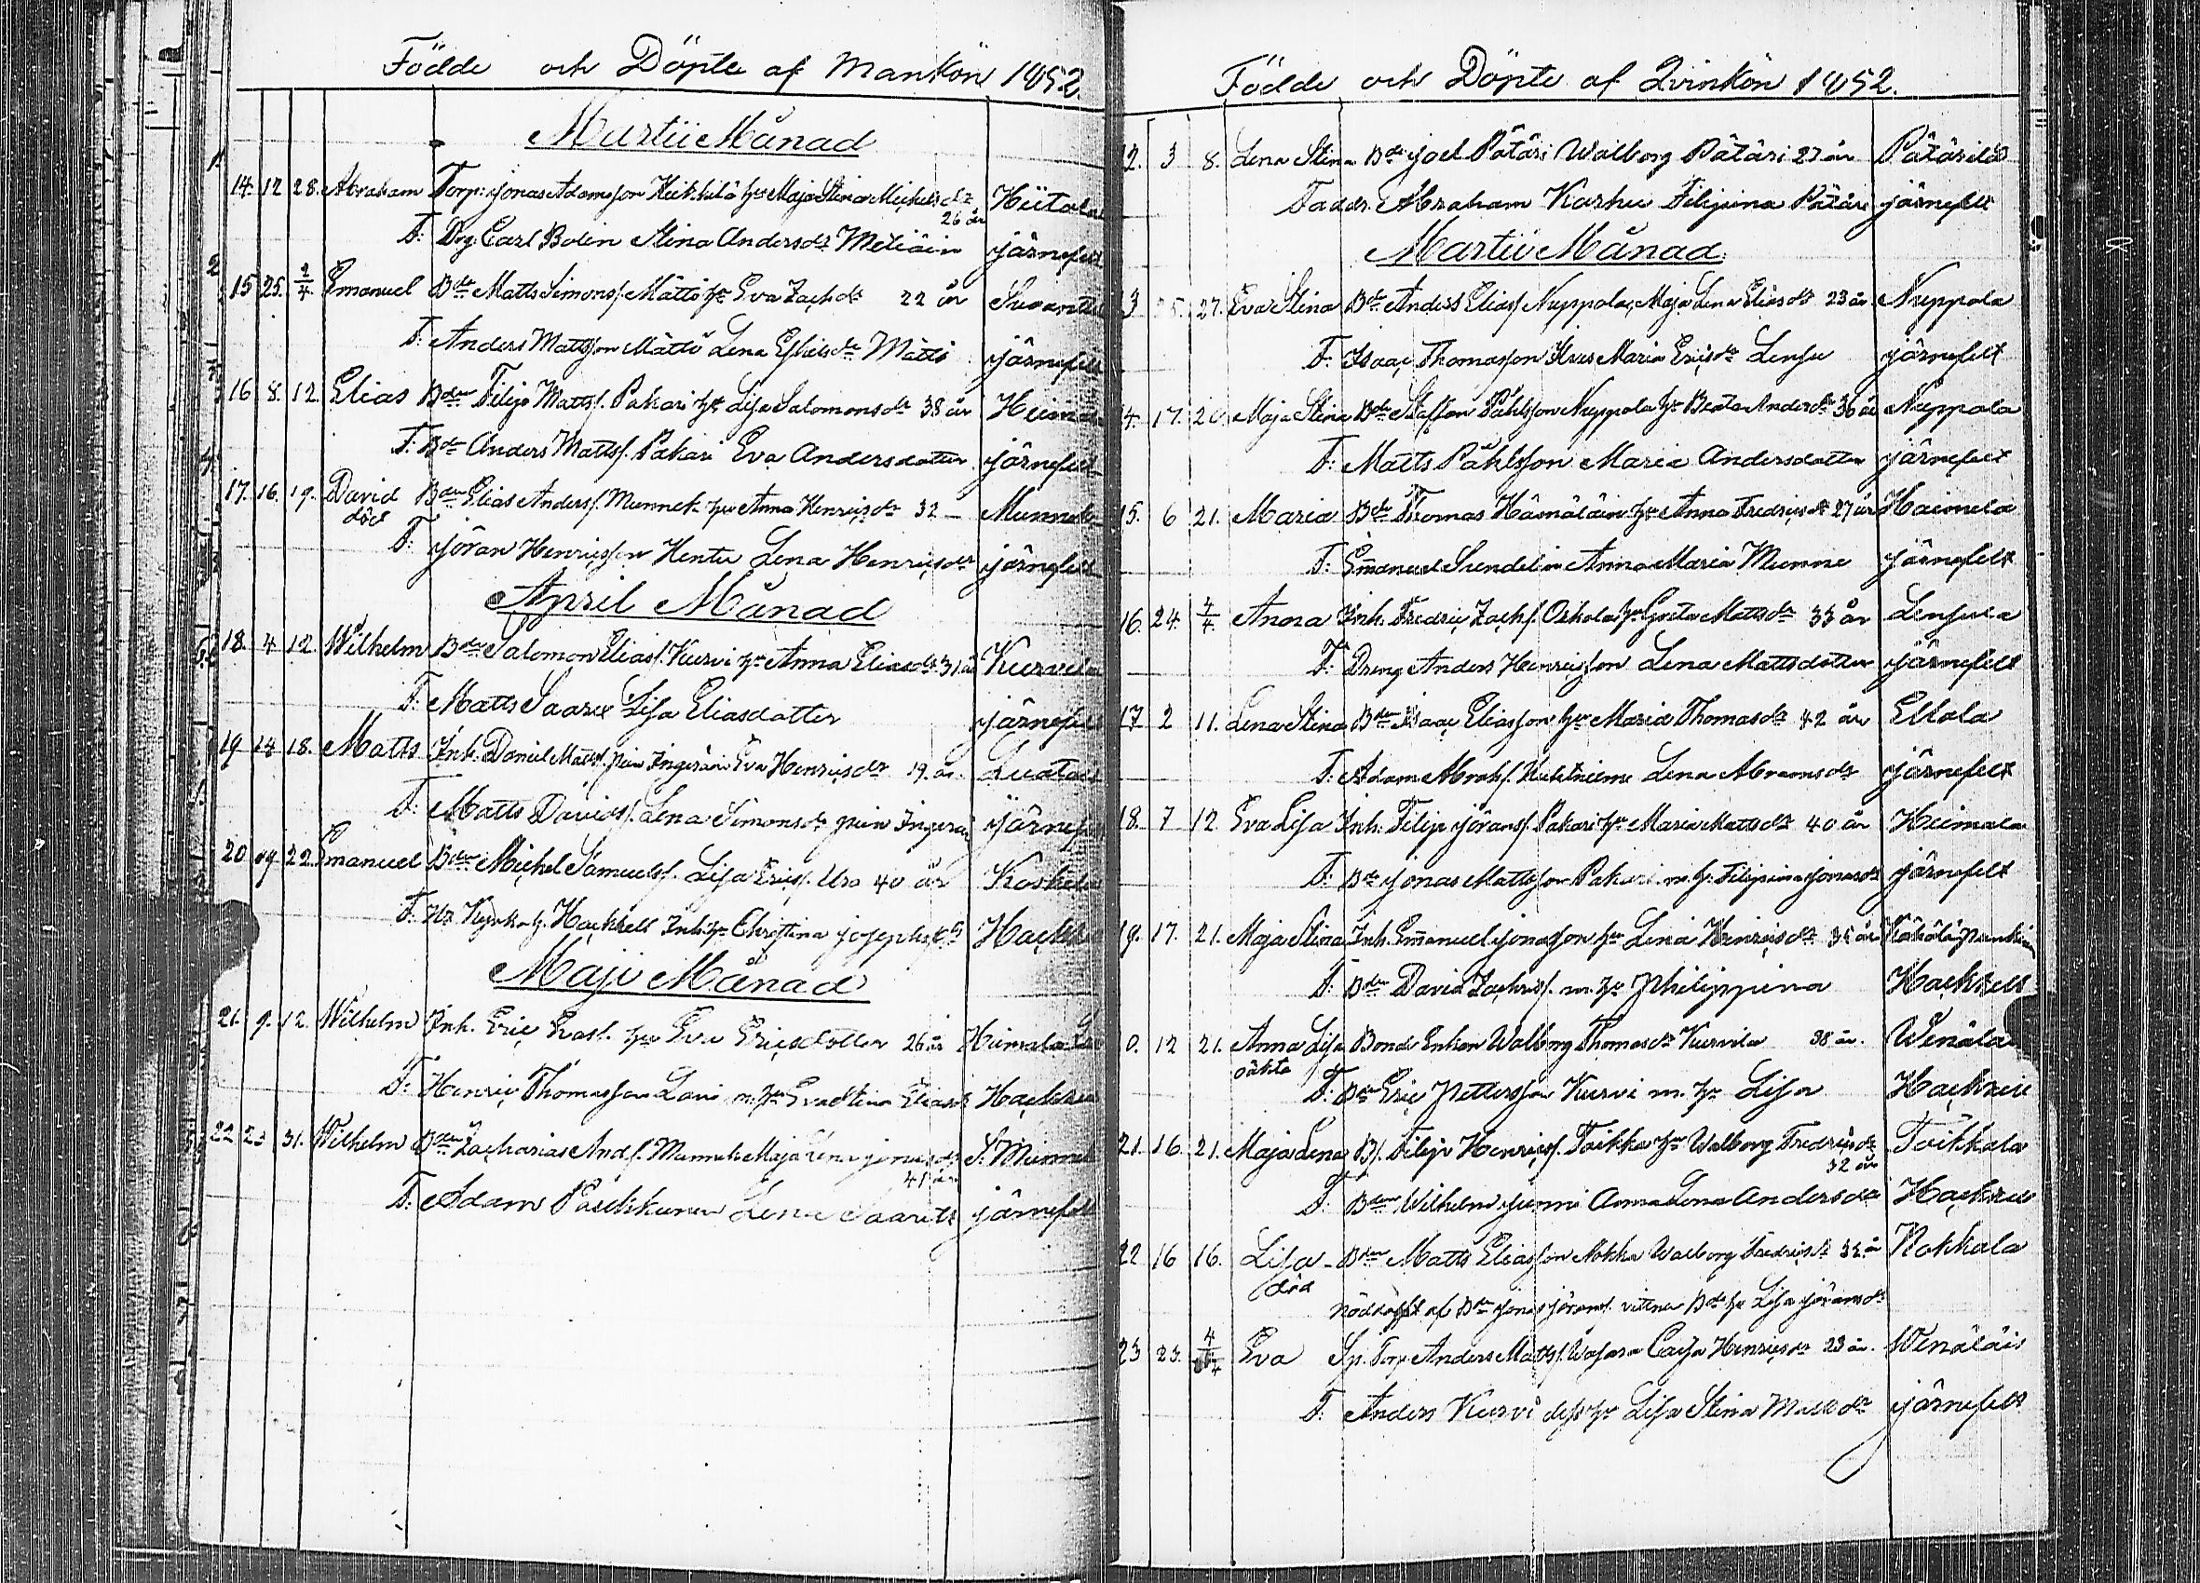 Födde och Döpte af Mankön 1852.
Martii Månad
14. 12 28. Abraham Torp: Jonas Adamsson Heikkilä hu Maja Stina Michelsdr 26 år Hiitola
F. Drg. Carl Bolin Stina Andersdr Metiäin järnefelt
15 25. 2/4. Emanuel Bde Matts Simons/. Mättö hu Eva Zachdr 22 år
F. Anders Mattsson Mättö Lena Eskilsdr Mättö järnefelt
16 8. 12. Elias Bdn Filip Matts/. Pakari hu Lisa Salomonsdr 38 år Heimala
F. Bdn Anders Matts/. Pakari Eva Andersdotter järnefelt
17. 16. 19. David Bdn Elias Anders/. Munnek hu Anna Henricsdr 32 – Munnek
död
F. Jöran Henricsson Hentu Lena Henricsdr järnefelt
April Månad
18. 4 12. Wilhelm Bdn Salomon Elias/. Kurvi hu Anna Eliasdr 31 år Kurvila
F. Matts Saarix Lisa Eliasdotter järnefelt
19 14 18. Matts Inh. Daniel Matts/. Eva Henricsdr 19 år.
F. Matts Davids/. Lena Simonsdr järnefelt
20 19. 22. Emanuel Bdn Michel Samuels/. Lisa Erics/. Uro 40 år Koskela
F. Hackzell Inh. hu Christina Josephsdr Hackzell
Maji Månad
21. 9. 12. Wilhelm Inh. Eric Eras/. hu Eva Ericsdotter 26 år Heimala
F. Henric Thomasson Lavi m. hu Eva Stina Eliasdr Hackzell
22 23 31. Wilhelm Bdn Zacharias And/. Munnek Maja Lena 41 år S. Munnek
F. Adam Pasikkunen Lena Saarix järnefelt
Födde och Döpte af Qvinkön 1852.
12. 3 8. Lena Stina Bde Joel Pätäri Walborg Pätäri 27 år Pätärilä
Faddr. Abraham Karhu Filipina Pätäri järnefelt
Martii Månad.
13 25. 27. Eva Stina Bdn Anders Elias/ Nuppola, Maja Lena Eliasdr 23 år Nuppola
F. Isaac Thomasson Maria Ericsdr Lensu järnefelt
14. 17. 20. Maja Stina Bdn Staffan Påhlsson Nuppola hu Beata Andersdr 36 år Nuppola
F. Matts Påhlsson Maria Andersdotter järnefelt
15. 6 21. Maria Bde Thomas Hämäläin hu Anna Fredricsdr 27 år Haimila
F. Emanuel Sundelin Anna Maria Munne järnefelt
16. 24. 4/4. Anna Inh. Fredric Zach/. Oskola hu Greta Mattsdr 33 år Lensula
F. Dreng Anders Henricsson Lena Mattsdotter järnefelt
17 2 11. Lena Stina Bdn Isaac Eliasson hu Maria Thomasdr 42 år Ellola
F. Adam Abrah/. Lena Abramsdr järnefelt
18. 7 12. Eva Lisa Inh. Filip Jörans/. Pakari hu Maria Mattsdr 40 år Heimala
F. Bde Jonas Mattsson Pakari m. h. Filipina Jonasdr järnefelt
19. 17. 21. Maja Stina Inh. Emanuel Jonasson hu Lena Henricsdr 35 år
F. Bdn David Zachris/. m. hu Philippina Hackzell
0. 12 21. Anna Lisa Bonde Enkan Walborg Thomasdr Kurvila 38 år. Wenäla
oäkta
F. Bdn Eric Pettersson Kurvi m. hu Lisa Hackzell
21. 16. 21. Maja Lena B/. Filip Henrics/. Toikka hu Walborg Fredricsdr 32 år Toikkala
F. Bdn Wilhelm Junni Anna Lena Andersdr Hackzell
22 16 16. Lisa – Bdn Matts Eliasson Nokka Walborg Fredricsdr 35 år Nokkala
död
nöddöpt af Bdn Jonas Jörans/. vittne Bde hu Lisa Jöransdr
23 23. 4/4 Eva Sp. Torp Anders Matts/. Wasara Caisa Henricsdr 23 år. Wenäläis
F. Anders Kurvi dess hu Lisa Stina Mattsdr järnefelt